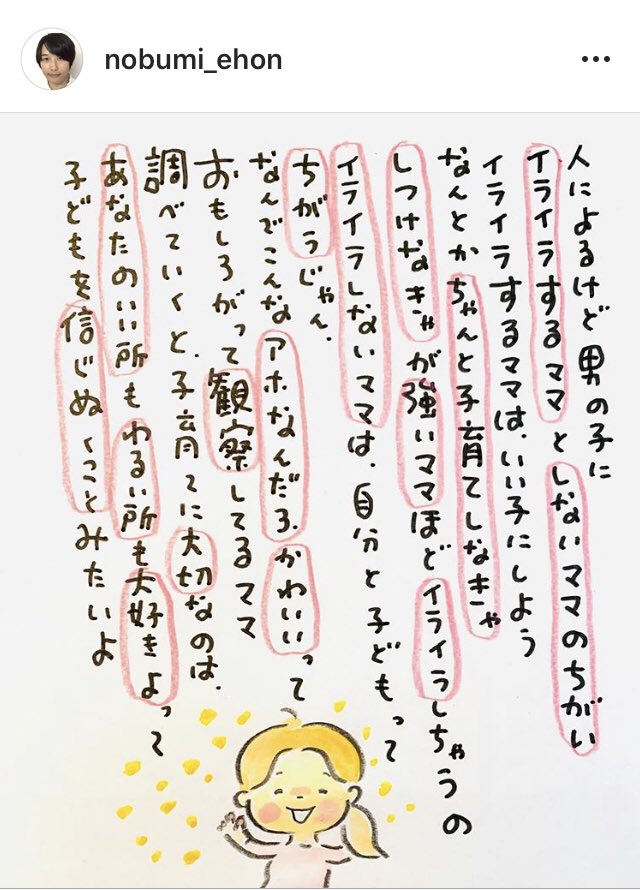 nobumi_ehon
人によるけど男の子に
イライラするママとしないママのちがい
イライラするママは、いい子にしよう
なんとかちゃんと子育てしなきゃ
しつけなきゃが強いママほどイライラしちゃうの
イライラしないママは、自分と子どもって
ちがうじゃん、
なんでこんなアホなんだろ、かわいいって
おもしろがって観察してるママ
調べていくと、子育てに大切なのは、
あなたのいい所もわるい所も大好きよって
子どもを信じぬくことみたいよ